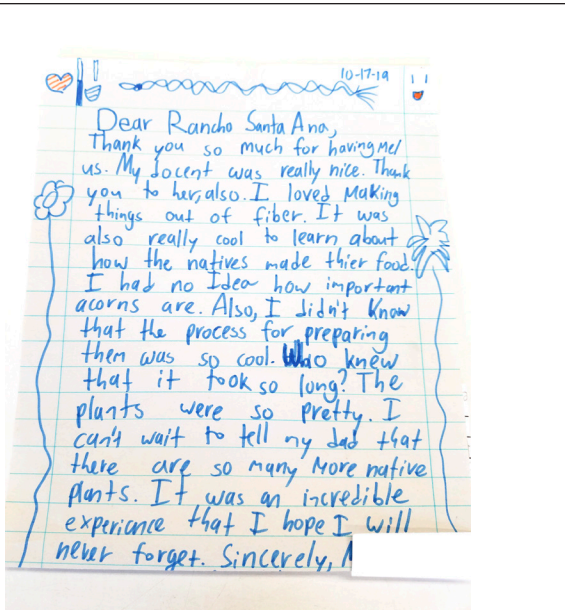 10-17-19
Dear Rancho Santa Ana,
Thank you so much for having Me/
us. My docent was really nice. Thank
you to her, also. I loved Making
things out of fiber. It was
also really cool to learn about
how the natives made thier food.
I had no Idea how important
acorns are. Also, I didn't know
that the process for preparing
them was so cool. Who knew
that it took so long? The
plants were so pretty. I
can't wait to tell my dad that
there are so many More native
plants. It was an incredible
experiance that I hope I will
never forget. Sincerely,